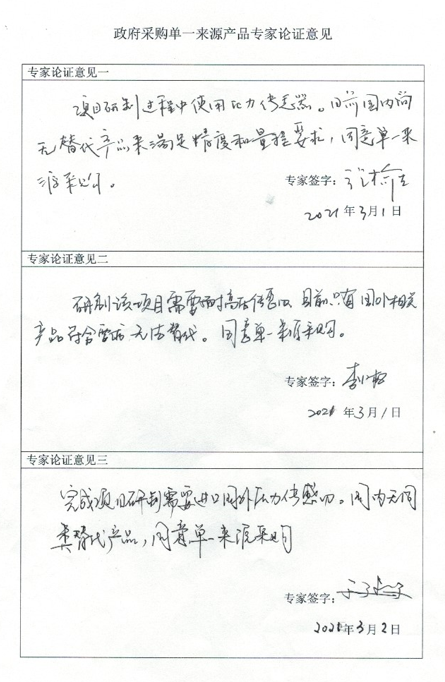 政府采购单一来源产品专家论证意见
专家论证意见一
项目研制过程中使用压力传感器。目前国内尚
无替代产品来满足精度和量程要求，同意单一来
源采购。
专家签字：
2021年3月1日
专家论证意见二
研制该项目需要耐高压传感器，目前只有国外相关
产品符合要求，无法替代。同意单一来源采购。
专家签字：
2021年3月1日
专家论证意见三
完成项目研制需要进口国外压力传感器。国内无同
类替代产品，同意单一来源采购
专家签字：
2021年3月2日